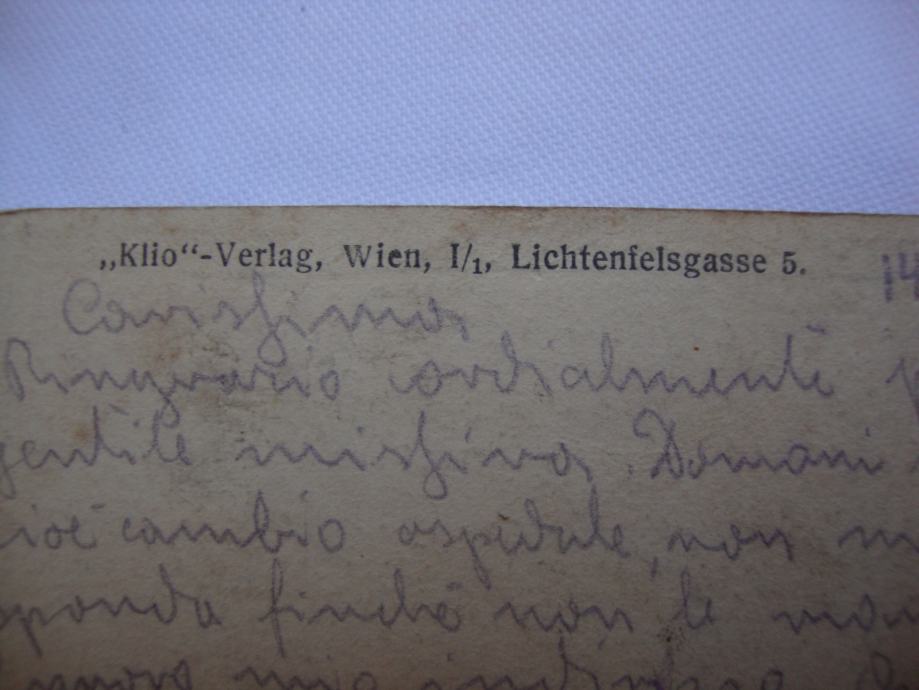 „Klio“-Verlag, Wien, I/1, Lichtenfelsgasse 5.
14
Carissima,
Ringrazio cordialmente
gentile missiva. Domani
cioè cambio ospedale, non
sponda finchè non le
nuovo mio indirizzo